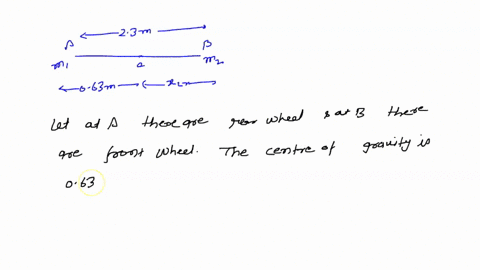 2.3m
A B
m1 a m2
0.63m x2m
Let at A there are rear wheel & at B there
are front wheel. The centre of gravity is
0.63